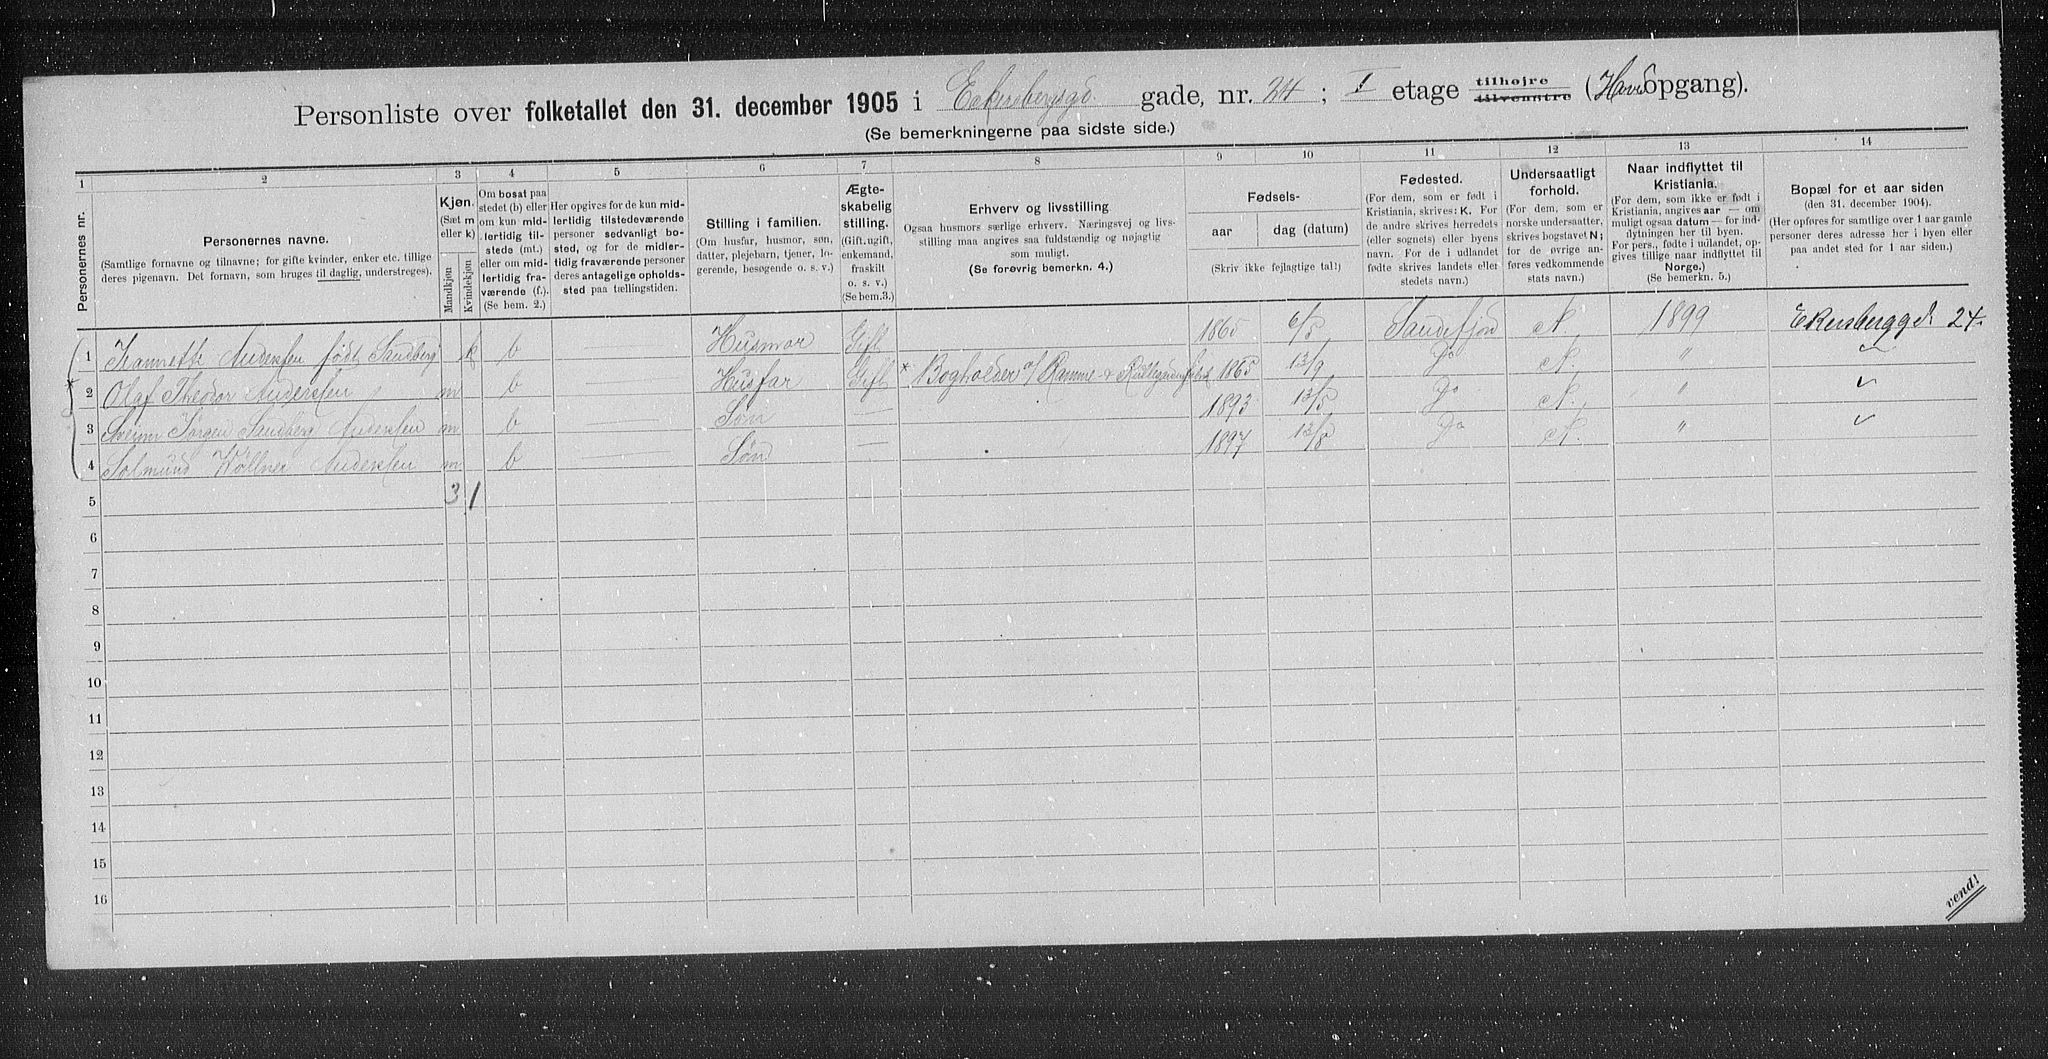 Personliste over folketallet den 31. december 1905 i Eckersbergsgd. gade, nr. 24; I etage tilhøjre tilvenstre (Have opgang).
(Se bemerkningerne paa sidste side.)
1 2 3 4 5 6 7 8 9 10 11 12 13 14
Personernes nr.
Personernes navne.
(Samtlige fornavne og tilnavne; for gifte kvinder, enker etc. tillige
deres pigenavn. Det fornavn, som bruges til daglig, understreges).
Kjøn.
(Sæt m
eller k)
Mandkjøn
Kvindekjøn
Om bosat paa
stedet (b) eller
om kun mid-
lertidig til-
stede (mt.)
eller om mid-
lertidig fra-
værende (f.).
(Se bem. 2.)
Her opgives for de kun mid-
lertidig tilstedeværende
personer sedvanligt bo-
sted, og for de midler-
tidig fraværende personer
deres antagelige opholds-
sted paa tællingstiden.
Stilling i familien.
(Om husfar, husmor, søn,
datter, plejebarn, tjener, lo-
gerende, besøgende o. s. v.)
Ægte-
skabelig
stilling.
(Gift, ugift,
enkemand,
fraskilt
o. s. v.)
(Se bem.3.)
Erhverv og livsstilling
Ogsaa husmors særlige erhverv. Næringsvej og livs-
stilling maa angives saa fuldstændig og nøjagtig
som muligt.
(Se forøvrig bemerkn. 4.)
Fødsels-
aar
dag (datum)
(Skriv ikke fejlagtige tal!)
Fødested.
(For dem, som er født i
Kristiania, skrives: K. For
de andre skrives herredets
(eller sognets) eller byens
navn. For de i udlandet
fødte skrives landets eller
stedets navn.)
Undersaatligt
forhold.
(For dem, som er
norske undersaatter,
skrives bogstavet N;
for de øvrige an-
føres vedkommende
stats navn.)
Naar indflyttet til
Kristiania.
(For dem, som ikke er født i
Kristiania, angives aar — om
muligt ogsaa datum — for ind-
flytningen her til byen.
For pers., fødte i udlandet, op-
gives tillige naar indflyttet til
Norge.)
(Se bemerkn. 5.)
Bopæl for et aar siden
(den 31. december 1904).
(Her opføres for samtlige over 1 aar gamle
personer deres adresse her i byen eller
paa andet sted for 1 aar siden.)
1 Hannette Andersen født Sandberg k b — Husmor Gift 1865 6/5 Sandefjord N. 1899 Ekersberggd. 24.
* 2 Olaf Theodor Andersen m b — Husfar Gift * Bogholder v/ Ramme & 1865 13/9 Do N. " ✓
3 Jørgen Sandberg Andersen m b — Søn — 1893 13/5 Do N. " ✓
4 Solmund Wøllner Andersen m b — Søn — 1897 13/8 Do N. " ✓
5 3 1
6
7
8
9
10
11
12
13
14
15
16
vend!